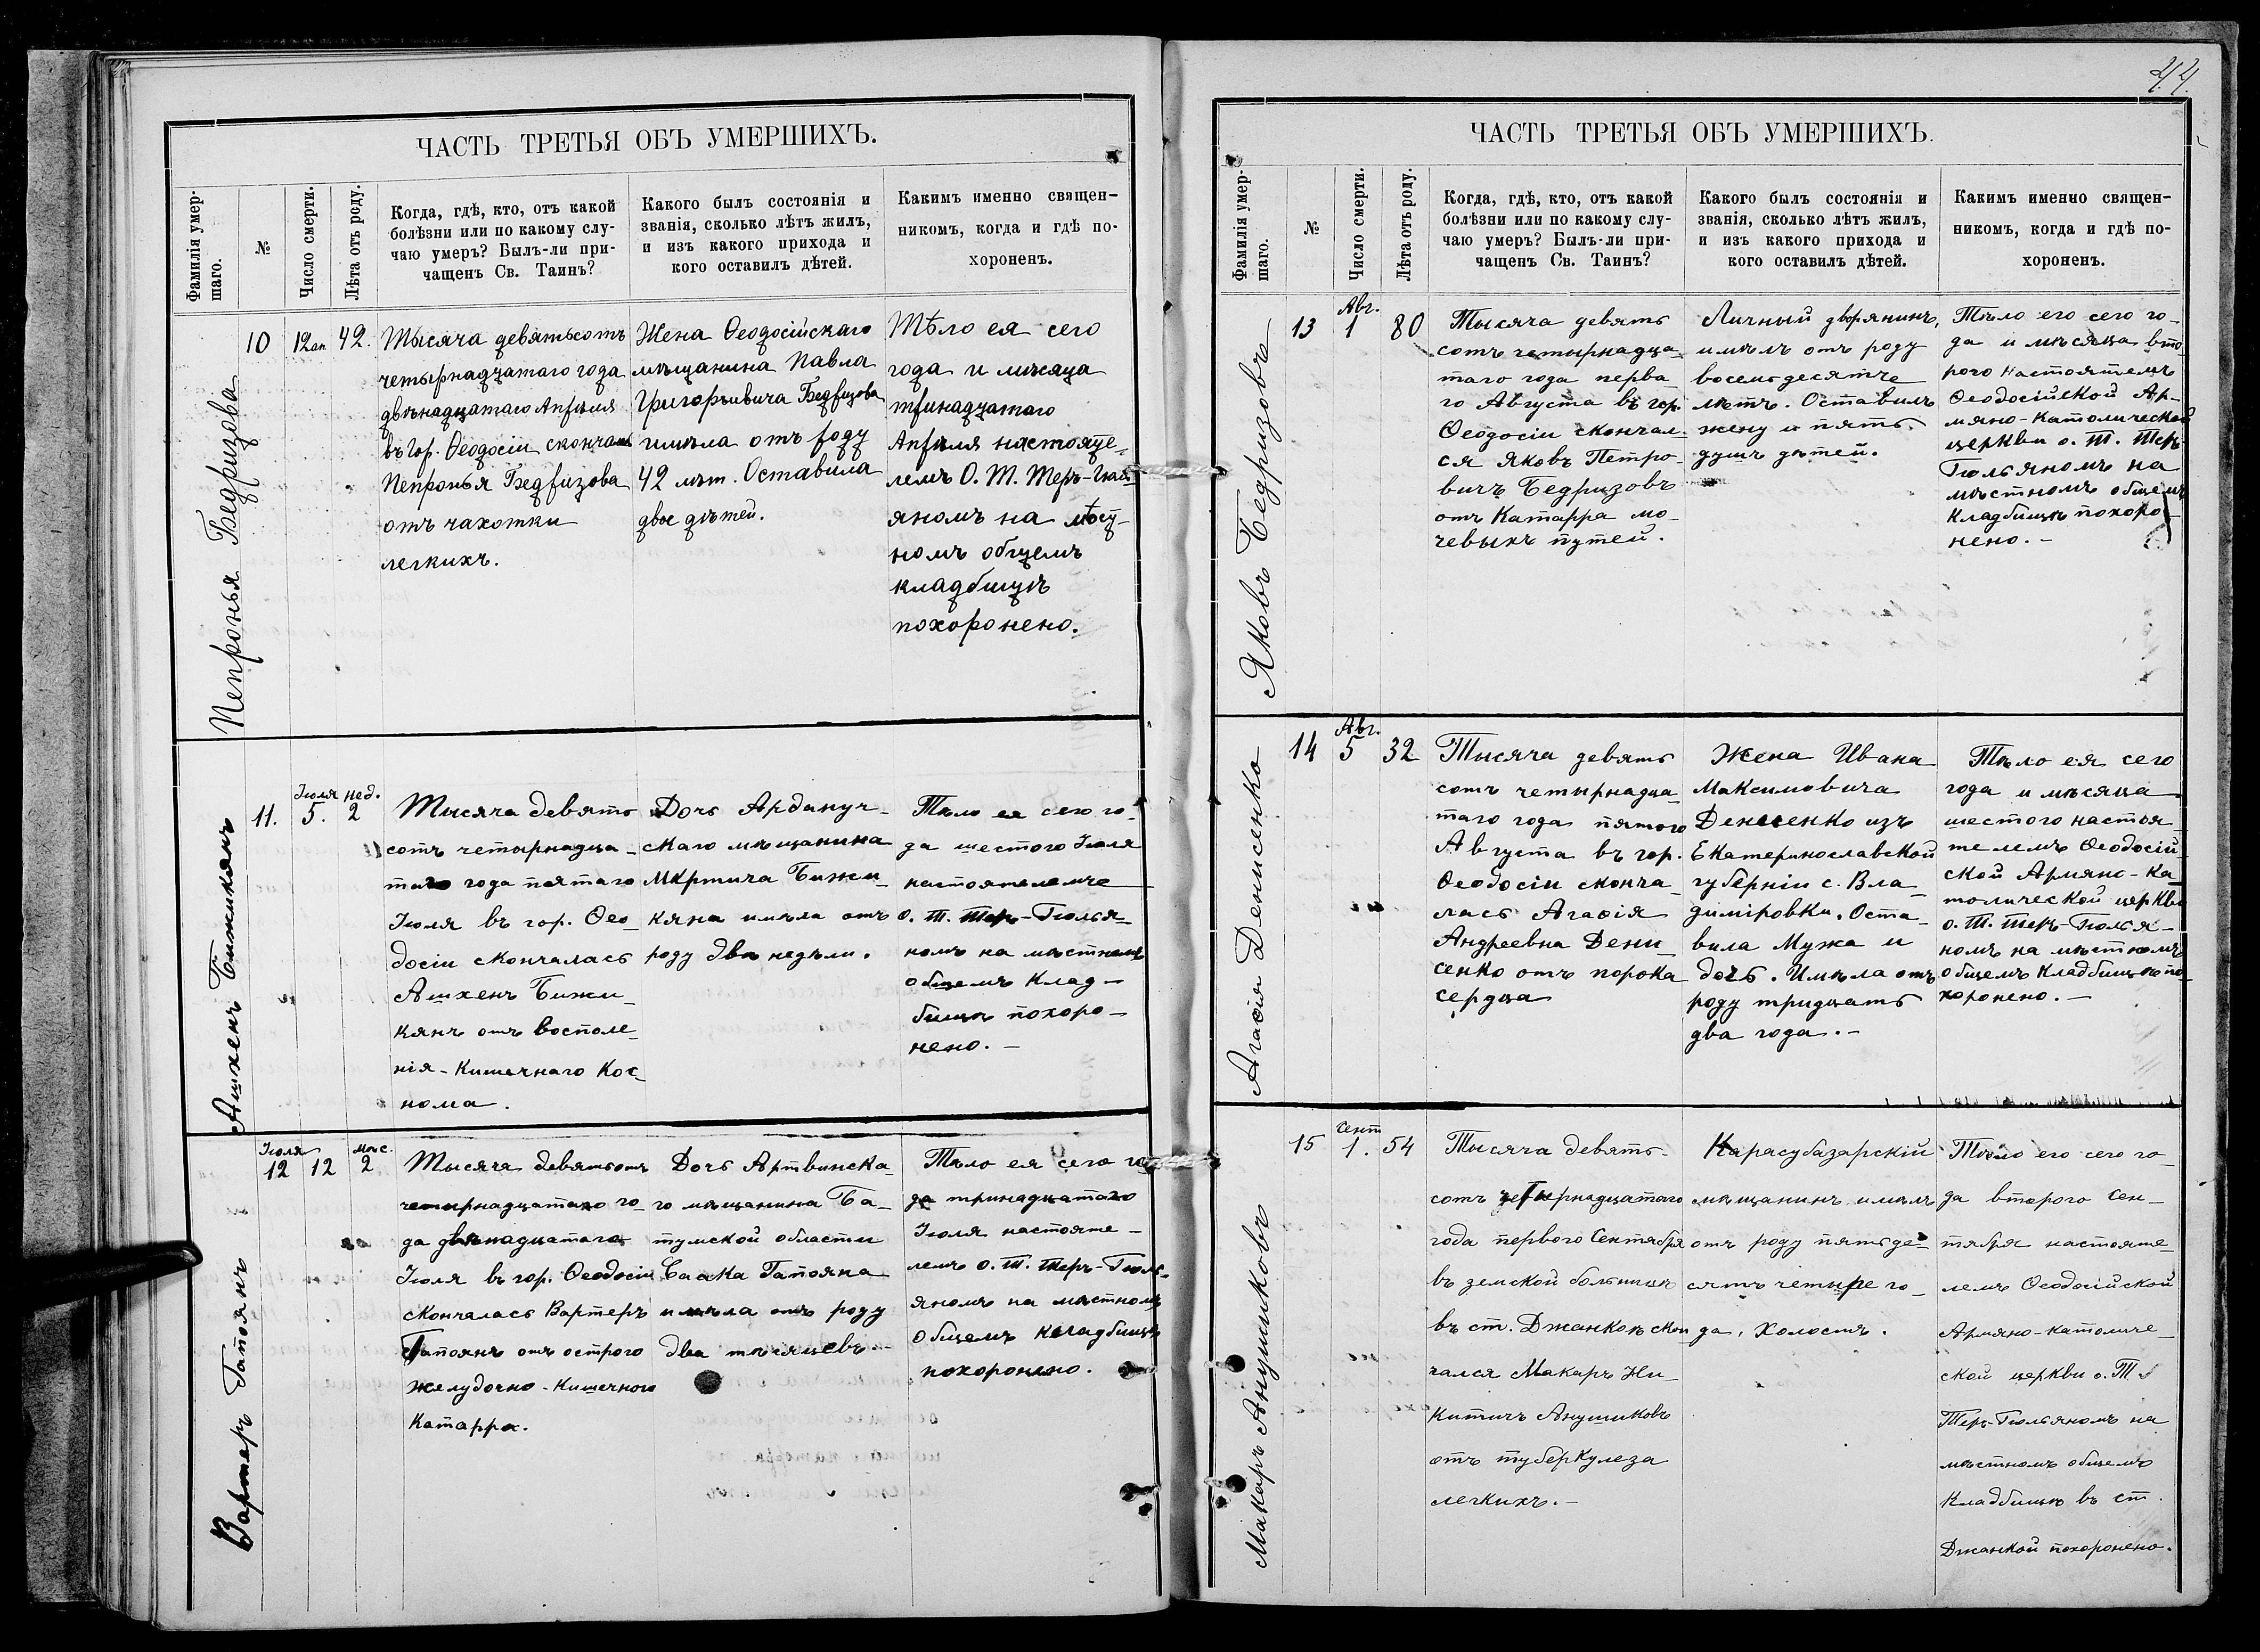 ЧАСТЬ ТРЕТЬЯ ОБЪ УМЕРШИХЪ.
Фамилія умер-
шаго.
№
Число смерти.
Лѣта отъ роду.
Когда, гдѣ, кто, отъ какой
болѣзни или по какому слу-
чаю умеръ? Былъ-ли при-
чащенъ Св. Таинъ?
Какого былъ состоянія и
званія, сколько лѣтъ жилъ,
и изъ какого прихода и
кого оставилъ дѣтей.
Какимъ именно священ-
никомъ, когда и гдѣ по-
хороненъ.
Пепронья Бедризова
10
12 ап
42.
Тысяча девятьсотъ
четырнадцатаго года
двѣнадцатаго Апрѣля
въ Гор. Ѳеодосіи скончалась
Пепронья Бедризова
отъ чахотки
легкихъ.
Жена Ѳеодосійскаго
мѣщанина Павла
Григорьевича Бедризова
имѣла отъ роду
42 лѣт. Оставила
двое дѣтей.
Тѣло ея сего
года и мѣсяца
тринадцатаго
Апрѣля настояте-
лемъ О. Т. Теръ-Гюль-
яномъ на мѣст-
номъ общемъ
кладбищѣ
похоронено.
Ашхенъ Бижикянъ
11.
Іюля
5.
нед.
2
Тысяча девять
сотъ четырнадца-
таго года пятаго
Іюля въ гор. Ѳео
досіи скончалась
Ашхенъ Бижи-
кянъ отъ восполе-
нія - Кишечнаго Кос-
нома.
Дочь Ардануч-
скаго мѣщанина
Мкртича Бижи-
кяна имѣла отъ
роду двѣ недѣли.
Тѣло ея сего го-
да шестого Іюля
настоятелемъ
о. Т. Теръ-Гюлья-
номъ на мѣстномъ
общемъ Клад-
бищѣ похоро-
нено. -
Вартеръ Гапоянъ
Іюля
12
12
мѣс.
2
Тысяча девятьсотъ
четырнадцатаго го-
да двѣнадцатаго
Іюля въ гор. Ѳеодосіи
скончалась Вартеръ
Гапоянъ отъ острого
желудочно-кишечного
Катарра.
Дочь Артвинска-
го мѣщанина Ба-
тумской области
Саака Гапояна
имѣла отъ роду
два мѣсяцевъ. -
Тѣло ея сего го-
да тринадцатого
Іюля настояте-
лемъ о. Т. Теръ-Гюль-
яномъ на мѣстномъ
общемъ кладбищѣ
похоронено.
ЧАСТЬ ТРЕТЬЯ ОБЪ УМЕРШИХЪ.
Фамилія умер-
шаго.
№
Число смерти.
Лѣта отъ роду.
Когда, гдѣ, кто, отъ какой
болѣзни или по какому слу-
чаю умеръ? Былъ-ли при-
чащенъ Св. Таинъ?
Какого былъ состоянія и
званія, сколько лѣтъ жилъ,
и изъ какого прихода и
кого оставилъ дѣтей.
Какимъ именно священ-
никомъ, когда и гдѣ по-
хороненъ.
Яковъ Бедризовъ
13
Авг.
1
80
Тысяча девять
сотъ четырнадца-
таго года перва-
го Августа въ гор.
Ѳеодосіи скончал-
ся Яковъ Петро-
вичъ Бедризовъ
отъ Катарра мо-
чевыхъ путей.
Личный дворянинъ,
имѣлъ отъ роду
восемьдесятъ
лѣтъ. Оставилъ
жену и пять
душъ дѣтей.
Тѣло его сего го-
да и мѣсяца вто-
рого настоятелемъ
Ѳеодосійской Ар-
мяно-Католической
церкви о. Т. Теръ-
Гюльяномъ на
мѣстномъ общемъ
кладбищѣ похоро-
нено. -
Агаѳія Денисенко
14
Авг.
5
32
Тысяча девять
сотъ четырнадца-
таго года пятого
Августа въ гор.
Ѳеодосіи сконча-
лась Агаѳія
Андреевна Дени-
сенко отъ порока
сердца
Жена Ивана
Максимовича
Денисенко изъ
Екатеринославской
губерніи с. Вла-
диміровки. Оста-
вила Мужа и
дочь. Имѣла отъ
роду тридцать
два года. -
Тѣло ея сего
года и мѣсяца
шестого настоя
телемъ Ѳеодосій-
ской Армяно-Ка-
толической церкви
о. Т. Теръ-Гюлья-
номъ на мѣстномъ
общемъ Кладбищѣ по-
хоронено. -
Макаръ Анушиковъ
15
Сент
1.
54
Тысяча девять-
сотъ четырнадцатаго
года первого Сентября
въ земской больницѣ
въ ст. Джанкоѣ скон
чался Макаръ Ни-
китичъ Анушиковъ
отъ туберкулеза
легкихъ. -
Карасубазарскій
мѣщанинъ имѣлъ
отъ роду пятьде-
сятъ четыре го-
да, Холостъ.
Тѣло его сего го-
да второго Сен-
тября настояте-
лемъ Ѳеодосійской
Армяно-католиче-
ской церкви о. Т.
Теръ-Гюльяномъ на
мѣстномъ общемъ
Кладбищѣ въ ст.
Джанкой похоронено.